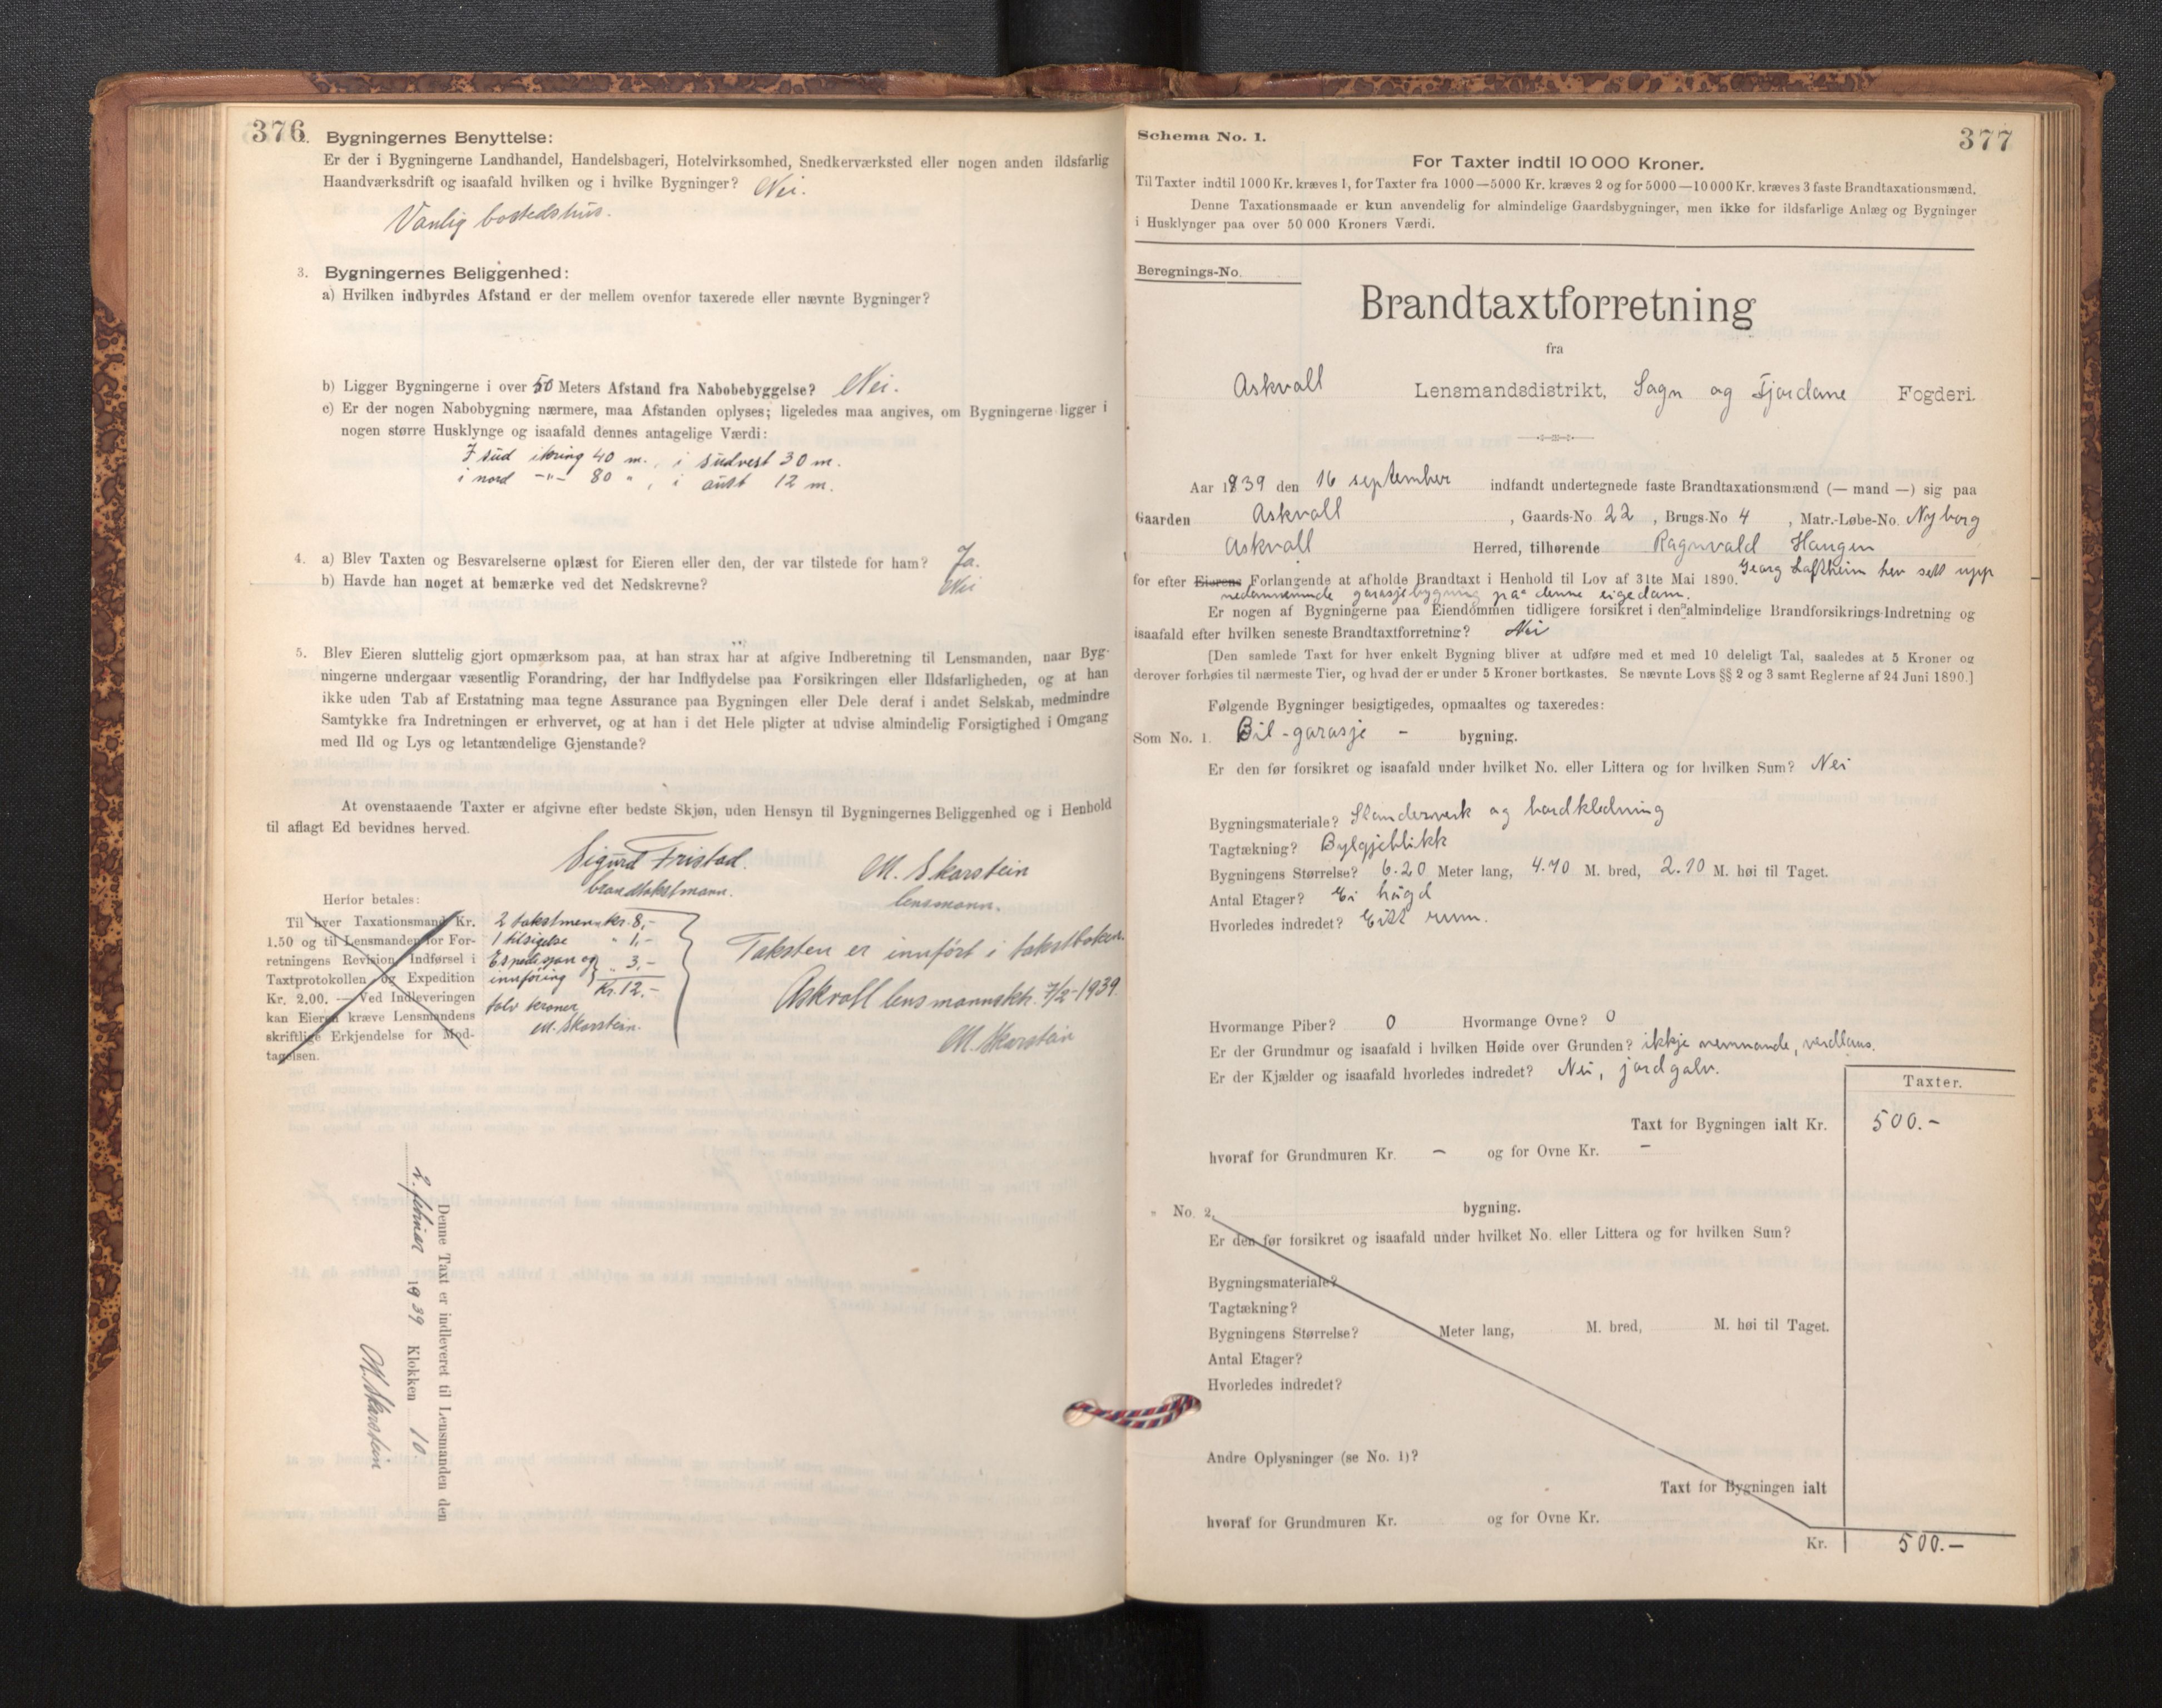 376
2. Bygningernes Benyttelse:
Er der i Bygningerne Landhandel, Handelsbageri, Hotelvirksomhed, Snedkerværksted eller nogen anden ildsfarlig
Haandværksdrift og isaafald hvilken og i hvilke Bygninger? Nei.
Vanlig bostedshus.
3. Bygningernes Beliggenhed:
a) Hvilken indbyrdes Afstand er der mellem ovenfor taxerede eller nævnte Bygninger?
b) Ligger Bygningerne i over 50 Meters Afstand fra Nabobebyggelse? Nei.
c) Er der nogen Nabobygning nærmere, maa Afstanden oplyses; ligeledes maa angives, om Bygningerne ligger i
nogen større Husklynge og isaafald dennes antagelige Værdi:
I sud ikring 40 m., i sudvest 30 m.
i nord -"- 80 " , i aust 12 m.
4. a) Blev Taxten og Besvarelserne oplæst for Eieren eller den, der var tilstede for ham? Ja.
b) Havde han noget at bemærke ved det Nedskrevne? Nei
5. Blev Eieren sluttelig gjort opmærksom paa, at han strax har at afgive Indberetning til Lensmanden, naar Byg-
ningerne undergaar væsentlig Forandring, der har Indflydelse paa Forsikringen eller Ildsfarligheden, og at han
ikke uden Tab af Erstatning maa tegne Assurance paa Bygningen eller Dele deraf i andet Selskab, medmindre
Samtykke fra Indretningen er erhvervet, og at han i det Hele pligter at udvise almindelig Forsigtighed i Omgang
med Ild og Lys og letantændelige Gjenstande?
At ovenstaaende Taxter er afgivne efter bedste Skjøn, uden Hensyn til Bygningernes Beliggenhed og i Henhold
til aflagt Ed bevidnes herved.
Sigurd Fristad. M. Skarstein
brandtakstmann. lensmann.
Herfor betales:
Til hver Taxationsmand Kr.
1.50 og til Lensmanden for For-
retningens Revision, Indførsel i
Taxtprotokollen og Expedition
Kr. 2.00. — Ved Indleveringen
kan Eieren kræve Lensmandens
skriftlige Erkjendelse for Mod-
tagelsen.
2 takstmenn kr. 8,-
1 tilsigelse " 1,-
Espedisjon og
innføring " 3,-
Kr. 12.-
tolv kroner
M. Skarstein.
Taksten er innført i takstboken.
Askvoll lensmannsktr. 7/2-1939.
M. Skarstein
Denne Taxt er indleveret til Lensmanden den
2. februar 1939 Klokken 10
M. Skarstein
377
Schema No. 1.
For Taxter indtil 10 000 Kroner.
Til Taxter indtil 1000 Kr. kræves 1, for Taxter fra 1000—5000 Kr. kræves 2 og for 5000—10 000 Kr. kræves 3 faste Brandtaxationsmænd.
Denne Taxationsmaade er kun anvendelig for almindelige Gaardsbygninger, men ikke for ildsfarlige Anlæg og Bygninger
i Husklynger paa over 50 000 Kroners Værdi.
Beregnings-No.
Brandtaxtforretning
fra
Askvoll Lensmandsdistrikt, Sogn og Fjordane Fogderi.
Aar 1939 den 16 september indfandt undertegnede faste Brandtaxationsmænd (— mand —) sig paa
Gaarden Askvoll , Gaards-No 22 , Brugs-No 4 , Matr.-Løbe-No. Nyborg
Askvoll Herred, tilhørende Ragnvald Haugen
for efter Eierens Forlangende at afholde Brandtaxt i Henhold til Lov af 31te Mai 1890. Georg hev sett upp
nedanemnde garasjebygning paa denne eigedom.
Er nogen af Bygningerne paa Eiendommen tidligere forsikret i den almindelige Brandforsikrings-Indretning og
isaafald efter hvilken seneste Brandtaxtforretning? Nei
[Den samlede Taxt for hver enkelt Bygning bliver at udføre med et med 10 deleligt Tal, saaledes at 5 Kroner og
derover forhøies til nærmeste Tier, og hvad der er under 5 Kroner bortkastes. Se nævnte Lovs §§ 2 og 3 samt Reglerne af 24 Juni 1890.]
Følgende Bygninger besigtigedes, opmaaltes og taxeredes:
Som No. 1. Bil-garasje - bygning.
Er den før forsikret og isaafald under hvilket No. eller Littera og for hvilken Sum? Nei
Bygningsmateriale? Standerverk og bordkledning
Tagtækning? Bylgjeblikk
Bygningens Størrelse? 6.20 Meter lang, 4.70 M. bred, 2.10 M. høi til Taget.
Antal Etager? Ei høgd
Hvorledes indredet? Eitt rum.
Hvormange Piber? 0 Hvormange Ovne? 0
Er der Grundmur og isaafald i hvilken Høide over Grunden? ikkje nemnande, verdlaus.
Er der Kjælder og isaafald hvorledes indredet? Nei, jordgolv.
Taxter.
Taxt for Bygningen ialt Kr. 500.-
hvoraf for Grundmuren Kr. - og for Ovne Kr. -
" No. 2. bygning.
Er den før forsikret og isaafald under hvilket No. eller Littera og for hvilken Sum?
Bygningsmateriale?
Tagtækning?
Bygningens Størrelse? Meter lang, M. bred, M. høi til Taget.
Antal Etager?
Hvorledes indredet?
Andre Oplysninger (se No. 1)?
Taxt for Bygningen ialt
hvoraf for Grundmuren Kr. og for Ovne Kr.
Kr. 500.-